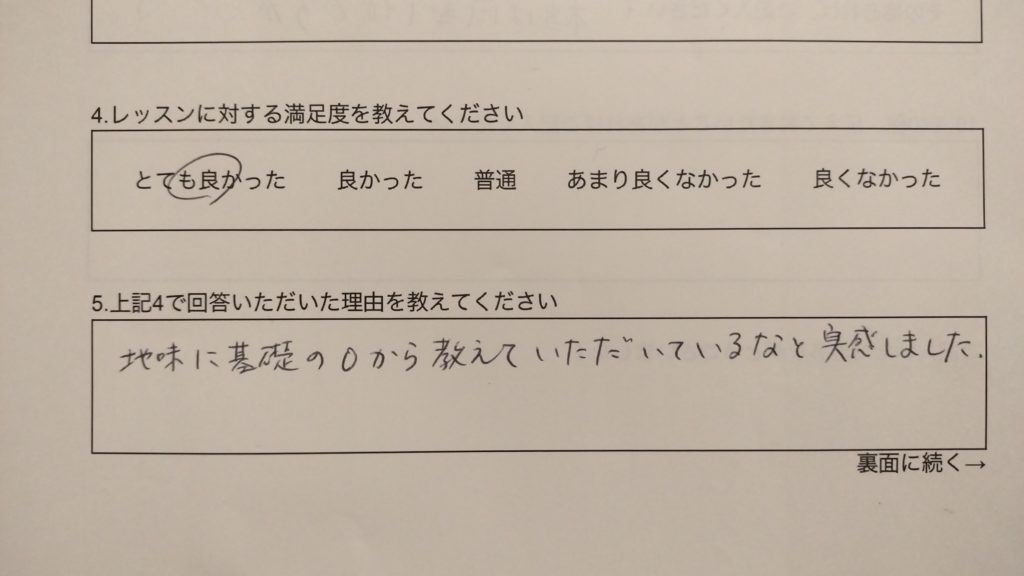 4.レッスンに対する満足度を教えてください
とても良かった 良かった 普通 あまり良くなかった 良くなかった
5.上記4で回答いただいた理由を教えてください
地味に基礎の0から教えていただいているなと実感しました.
裏面に続く→